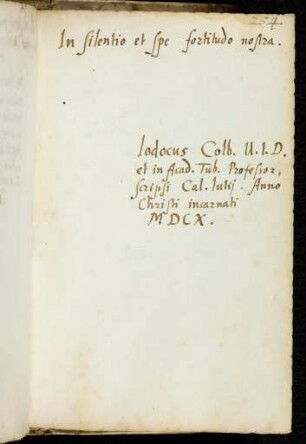 254.
In silentio et spe fortitudo nostra.
Iodocus Colb. U. I. D.
et in Acad. Tub. Professor,
scripsi Cal. Iulij. Anno
Christi incarnati
MDCX.